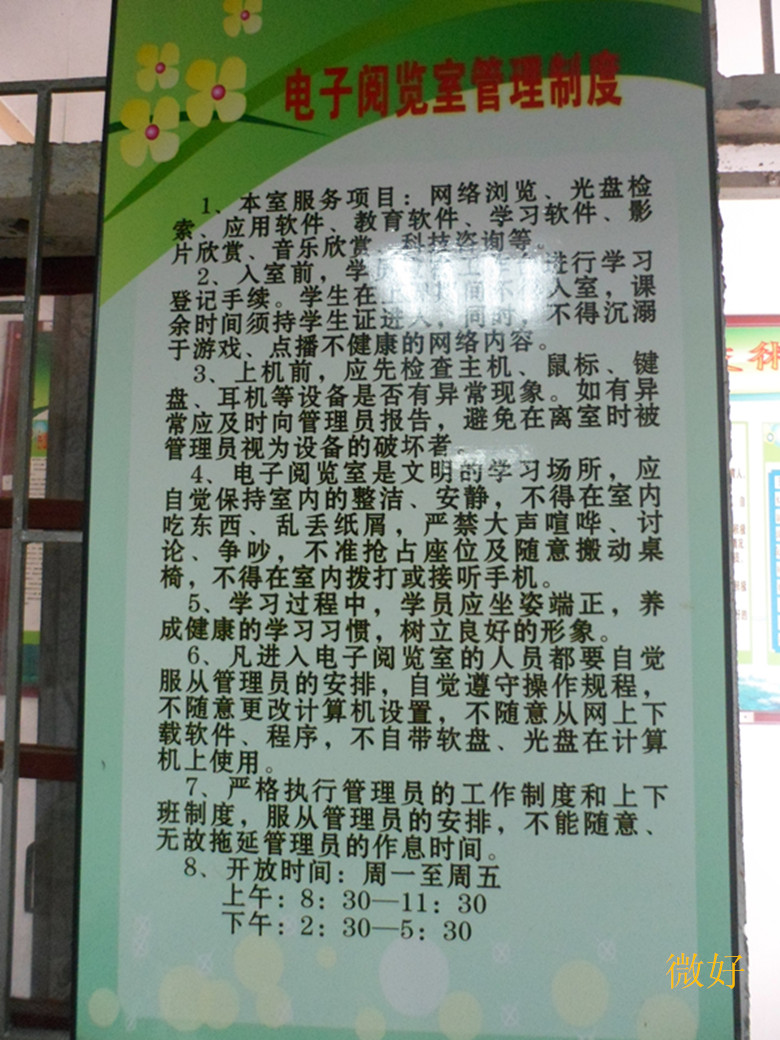 电子阅览室管理制度
1、本室服务项目：网络浏览、光盘检
索、应用软件、教育软件、学习软件、影
片欣赏、音乐欣赏、科技咨询等。
2、入室前，学员 进行学习
登记手续。学生在上课时间不得入室，课
余时间须持学生证进入，同时，不得沉溺
于游戏、点播不健康的网络内容。
3、上机前，应先检查主机、鼠标、键
盘、耳机等设备是否有异常现象。如有异
常应及时向管理员报告，避免在离室时被
管理员视为设备的破坏者。
4、电子阅览室是文明的学习场所，应
自觉保持室内的整洁、安静，不得在室内
吃东西、乱丢纸屑，严禁大声喧哗、讨
论、争吵，不准抢占座位及随意搬动桌
椅，不得在室内拨打或接听手机。
5、学习过程中，学员应坐姿端正，养
成健康的学习习惯，树立良好的形象。
6、凡进入电子阅览室的人员都要自觉
服从管理员的安排，自觉遵守操作规程，
不随意更改计算机设置，不随意从网上下
载软件、程序，不自带软盘、光盘在计算
机上使用。
7、严格执行管理员的工作制度和上下
班制度，服从管理员的安排，不能随意、
无故拖延管理员的作息时间。
8、开放时间：周一至周五
上午：8：30—11：30
下午：2：30—5：30
微好